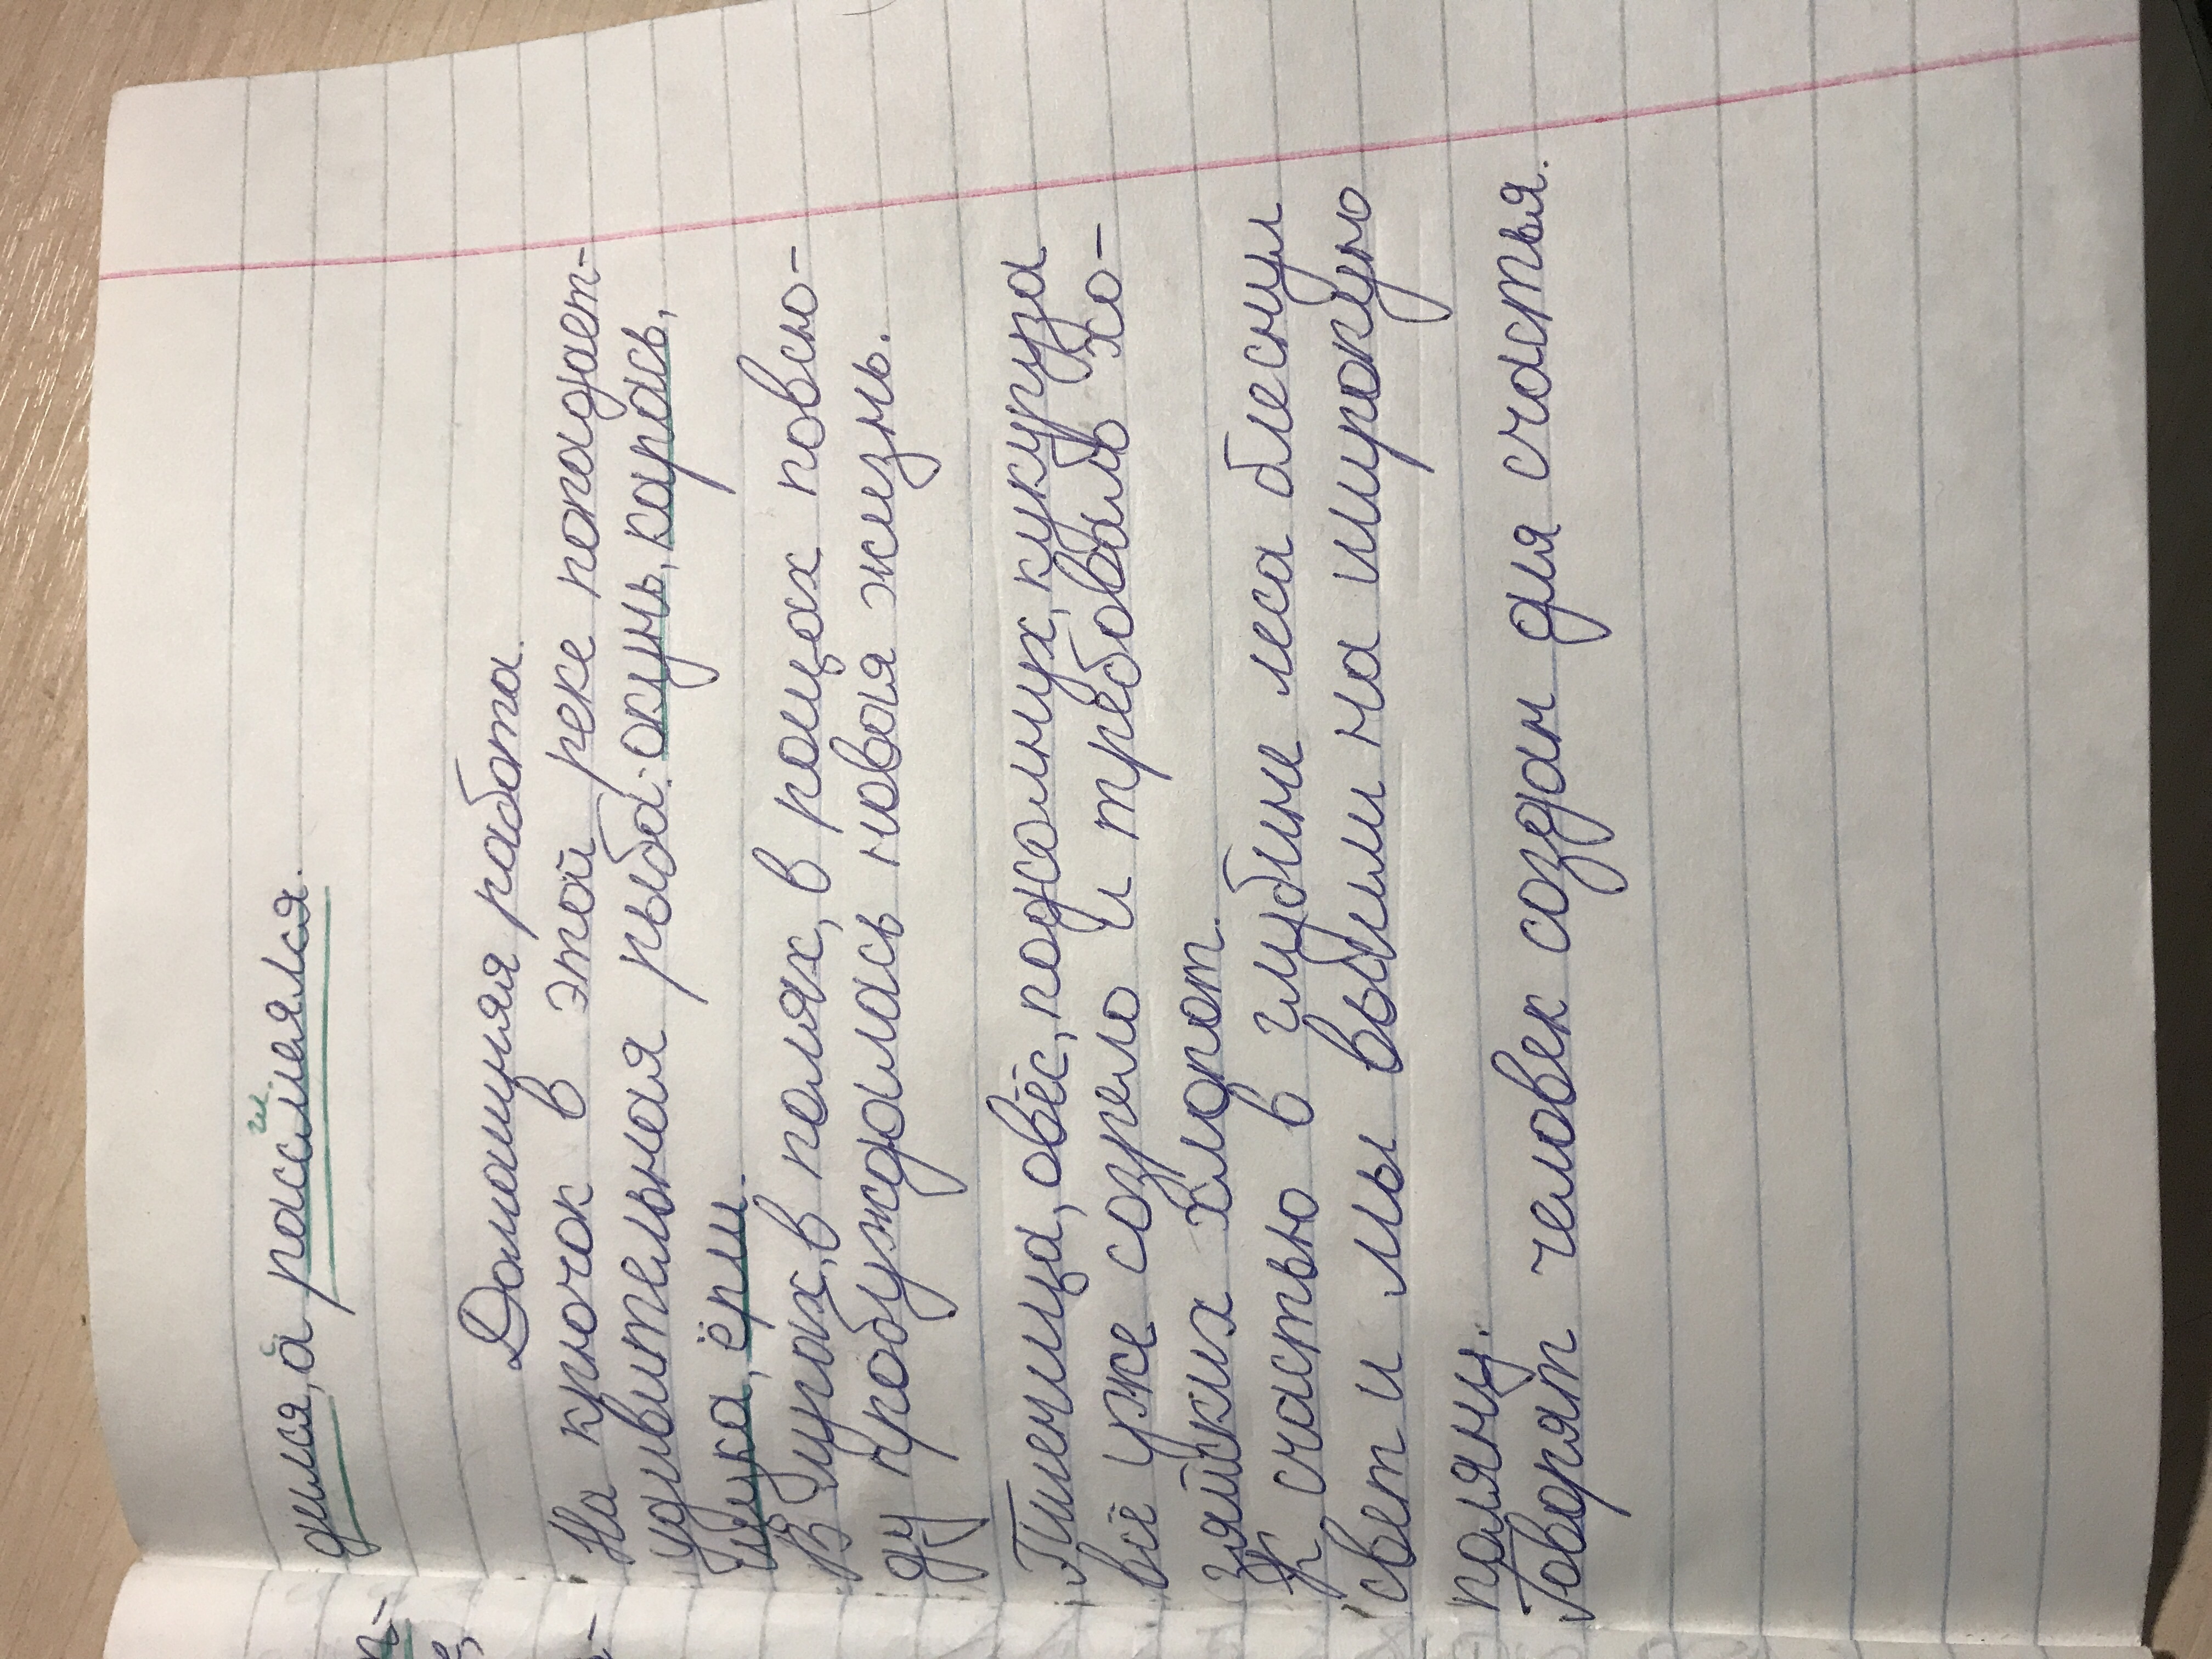 дился, а рассмеялся.
Домашняя работа.
На крючок в этой реке попадает-
удивительная рыба: окунь, карась,
щука, ёрш.
В лугах, в полях, в рощах повсю-
ду пробуждалась новая жизнь.
Пшеница, овёс, подсолнух, кукуруза
всё уже созрело и требовало хо-
зяйских хлопот.
К счастью в глубине леса блеснул
свет и мы вышли на широкую
поляну.
Говорят человек создан для счастья.